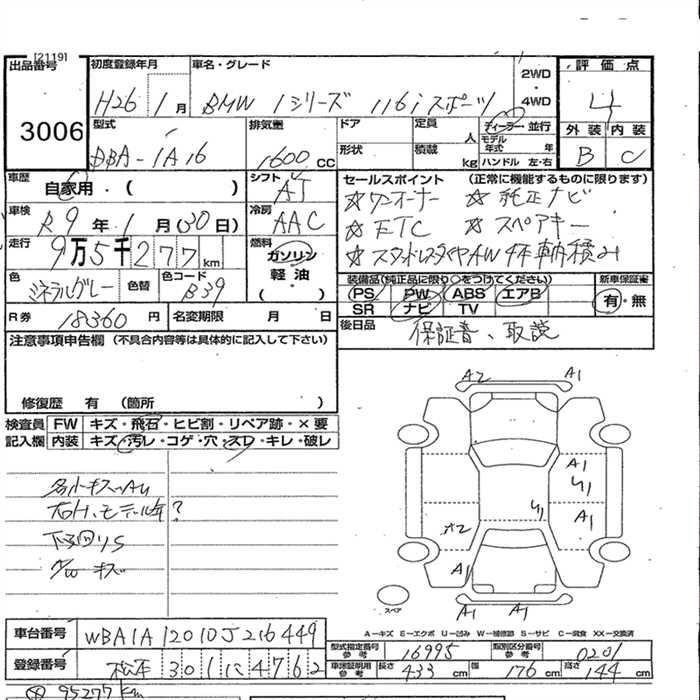 [2119]
出品番号 初度登録年月 車名・グレード 2WD・4WD 評価点
3006 H26 1月 BMW 1シリーズ 116i スポーツ 4
型式 排気量 ドア 定員 人 ディーラー・並行 外装 内装
DBA-1A16 1600cc 形状 積載 kg モデル年式 年 ハンドル 左・右 B C
車歴 自家用・( ) シフト AT セールスポイント (正常に機能するものに限ります)
車検 R9年1月(30日) 冷房 AAC ☆ワンオーナー ☆純正ナビ
☆ETC ☆スペアキー
走行 9万5千277km 燃料 ガソリン 軽油 ( ) ☆スタッドレスタイヤAW4本車輌積み
色 ミネラルグレー 色替 色コード B39 装備品(純正品に限り○をつけてください) 新車保証書
PS PW ABS エアB 有・無
SR ナビ TV
R券 18360円 名変期限 月 日 後日品 保証書、取説
注意事項申告欄 (不具合内容等は具体的に記入して下さい)
修復歴 有 (箇所 )
検査員記入欄 FW キズ・飛石・ヒビ割・リペア跡・×要
内装 キズ・汚レ・コゲ・穴・スレ・キレ・破レ
A2 A1
A1
A1
A1
A1 A1
スペア
A-キズ E-エクボ U-凹み W-補修跡 S-サビ C-腐食 XX-交換済
車台番号 WBA1A12010J216449
登録番号 松本 301 に 4762
型式指定番号 参考 16995 類別区分番号 参考 0201
車庫証明用 参考 長さ 433cm 幅 176cm 高さ 144cm
95277km